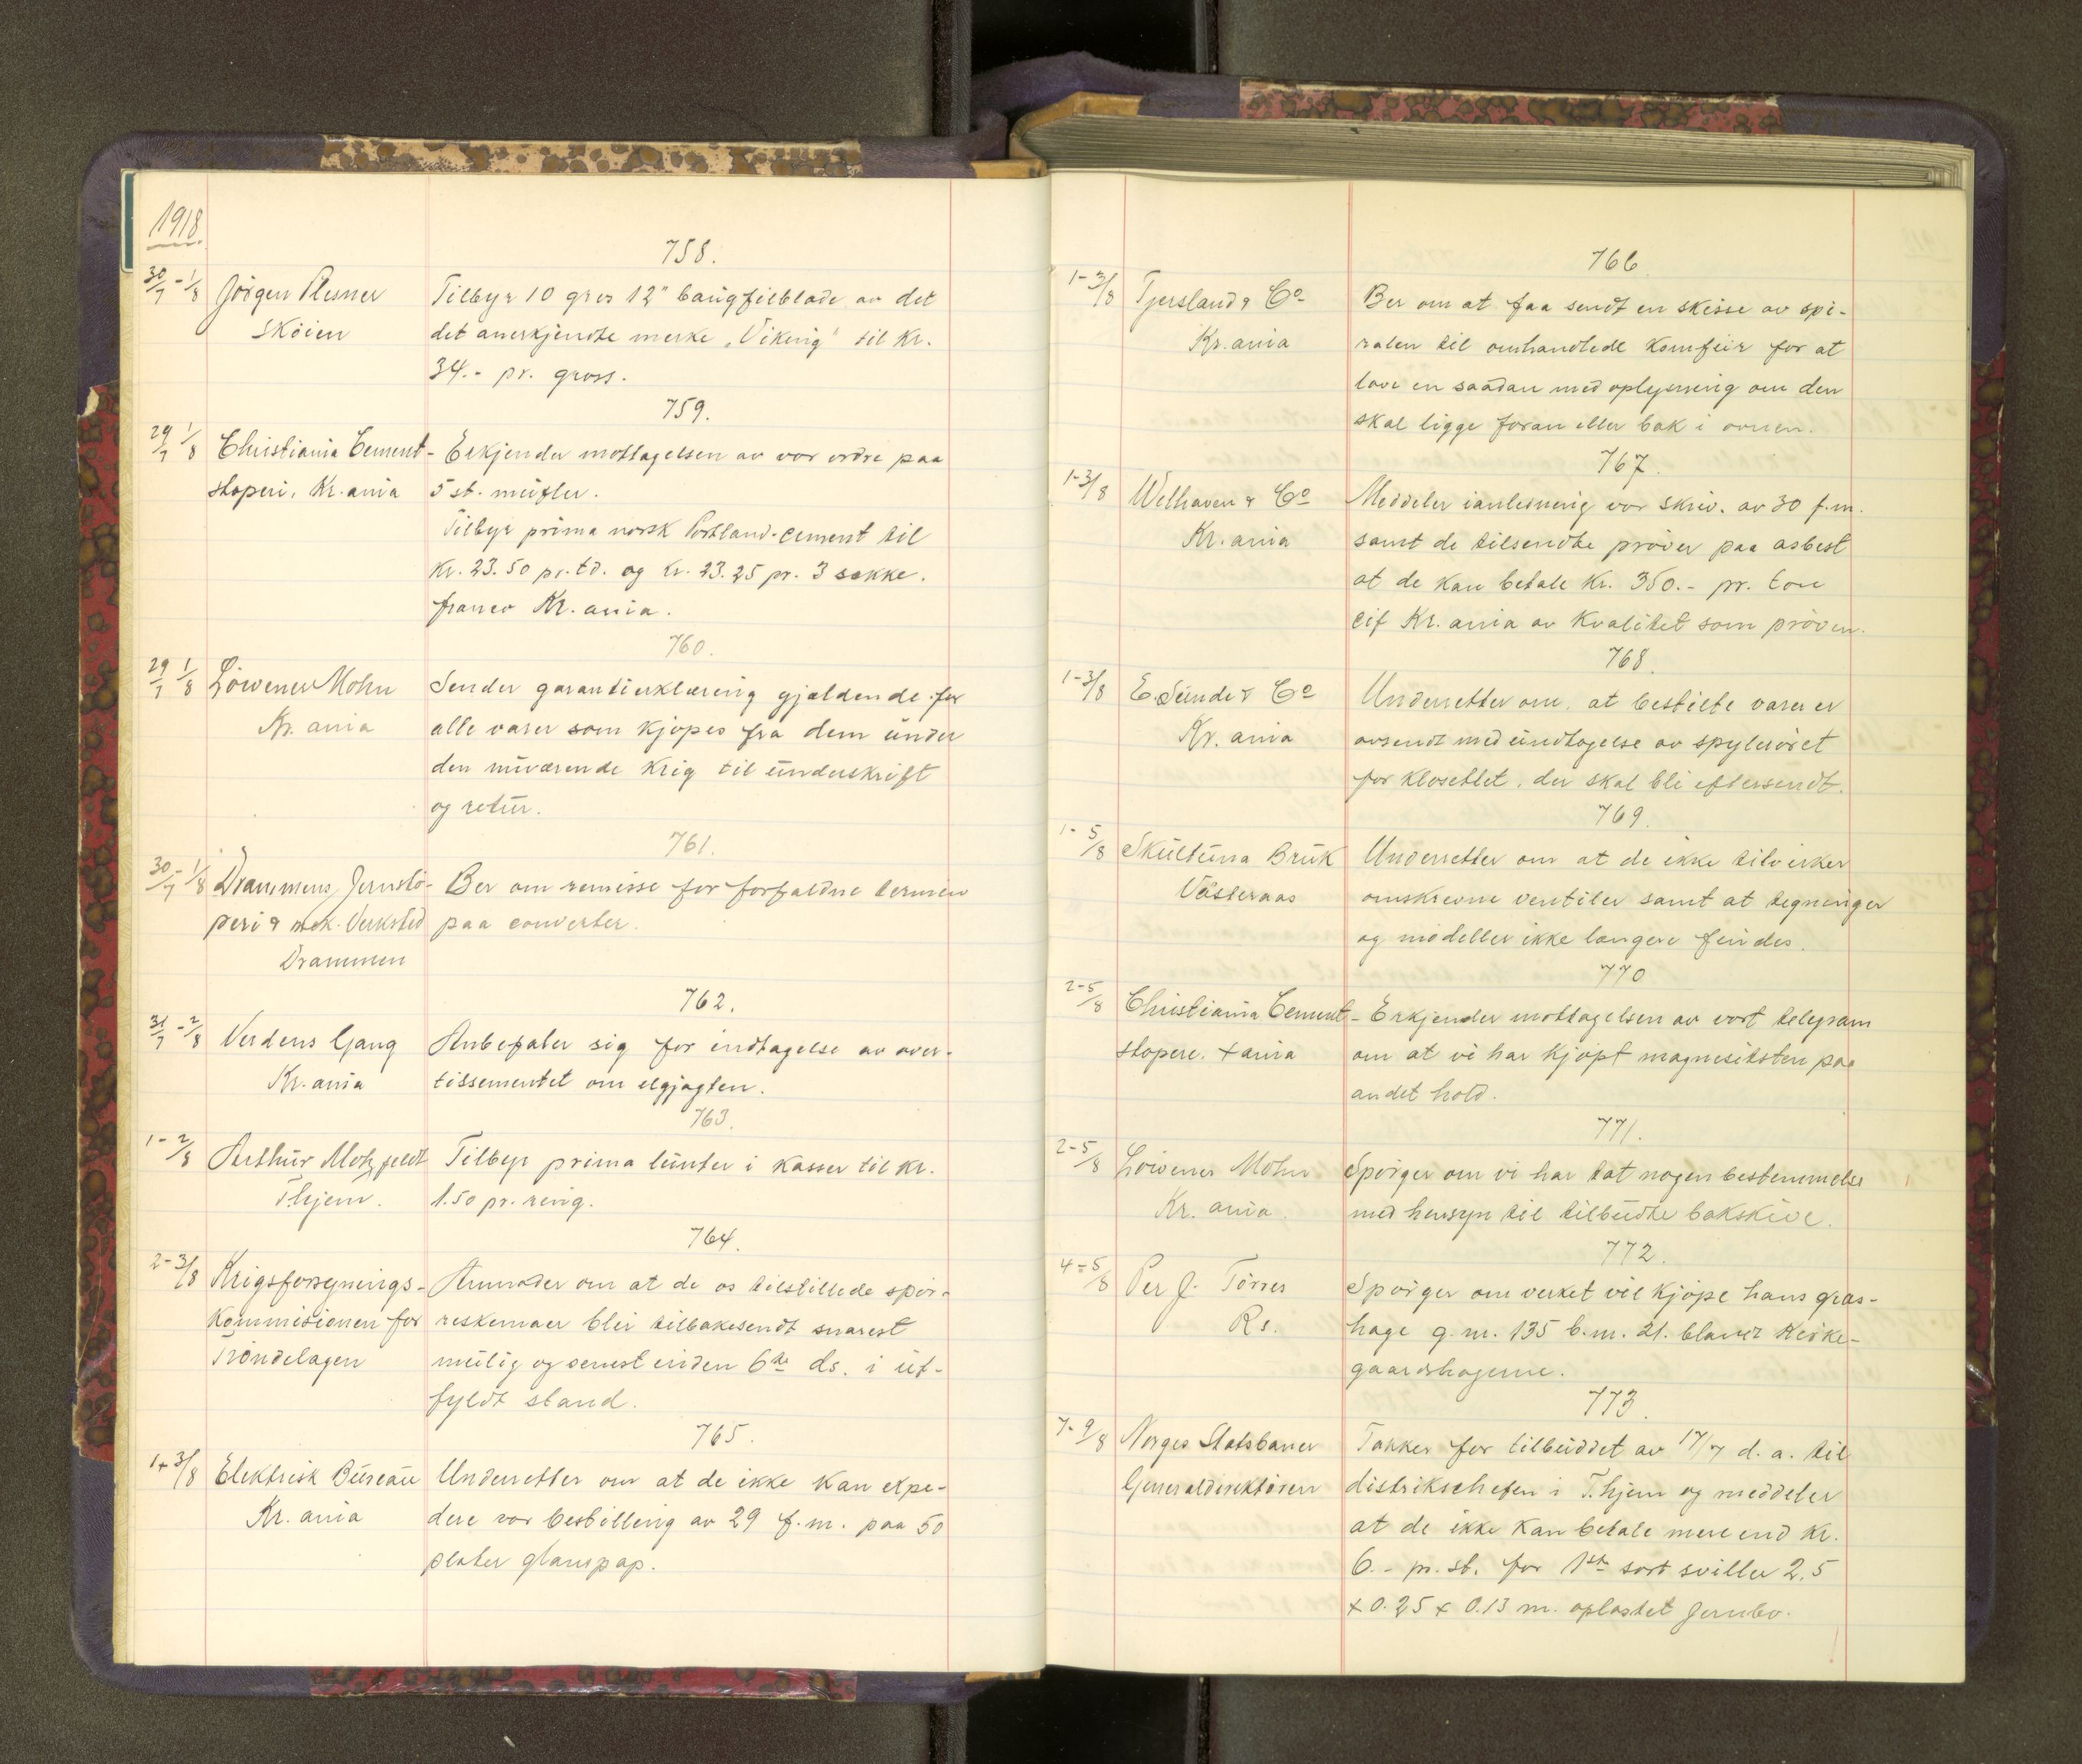 1918
758.
30/7 - 1/8 Jörgen Plesner Tilbyr 10 gros 12" baugfilblade av det
Sköien det anerkjendte merke „Viking" til Kr.
34.- pr. gross.
759.
29/7 1/8 Christiania Cement- Erkjender mottagelsen av vor ordre paa
stöperi, Kr.ania 5 st. mufler.
Tilbyr prima norsk Portland-cement til
Kr. 23.50 pr. td. og kr. 23.25 pr. 3 sække.
franco Kr.ania.
760.
29/7 1/8 Löwener Mohn Sender garantierklæring gjældende for
Kr.ania alle varer som kjöpes fra dem under
den nuværende krig til underskrift
og retur.
761.
30/7 - 1/8 Drammens Jernstö- Ber om remisse for forfaldne termin
peri & mek. Verksted paa converter.
Drammen
762.
31/7 - 2/8 Verdens Gang Anbefaler sig for indtagelse av aver-
Kr.ania tissementet om elgjagten.
763.
1-2/8 Arthur Motzfeldt Tilbyr prima lunter i kasser til kr.
T.hjem. 1.50 pr. ring.
764.
2-3/8 Krigsforsynings- Anmoder om at de os tilstillede spör-
Kommisionen for reskemaer blir tilbakesendt snarest
Tröndelagen mulig og senest inden 6te ds. i ut-
fyldt stand.
765.
1-3/8 Elektrisk Bureau Underretter om at de ikke kan expe-
Kr.ania dere vor bestilling av 29 f.m. paa 50
plater glanspap.
766.
1-3/8 Tjersland & Co Ber om at faa sendt en skisse av spi-
Kr.ania ralen til omhandlede komfur for at
lave en saadan med oplysning om den
skal ligge foran eller bak i ovnen.
767.
1-3/8 Welhaven & Co Meddeler ianledning vor skriv. av 30 f.m.
Kr.ania samt de tilsendte pröver paa asbest
at de kan betale Kr. 350.- pr. ton
cif Kr.ania av kvalitet som pröven.
768.
1-3/8 E. Sunde & Co Underretter om, at bestilte varer er
Kr.ania avsendt med undtagelse av spyleröret
for klosettet, der skal bli eftersendt.
769.
1-5/8 Skultuna Bruk Underretter om at de ikke tilvirker
Västeraas omskrevne ventiler samt at tegninger
og modeller ikke længere findes.
770
2-5/8 Christiania Cement- Erkjender mottagelsen av vort telegram
stöperi. Xania om at vi har kjöpt magnesitsten paa
andet hold.
771.
2-5/8 Löwener Mohn Spörger om vi har tat nogen bestemmelse
Kr.ania. med hensyn til tilbudte bakskive.
772.
4-5/8 Per J. Törres Spörger om verket vil kjöpe hans græs-
Rs. hage g.m. 135 b.m. 21. blandt Kirke-
gaardshagerne.
773.
7-9/8 Norges Statsbaner Takker for tilbuddet av 17/7 d.a. til
Generaldirektören distrikschefen i T.hjem og meddeler
at de ikke kan betale mere end kr.
6.- pr. st. for 1ste sort sviller 2,5
x 0.25 x 0.13 m. oplastet Jernbv.